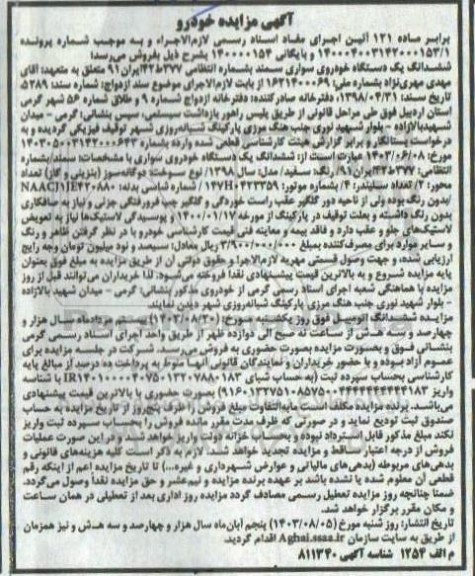 آگهی مزایده خودرو
برابر ماده ۱۲۱ آئین اجرای مفاد اسناد رسمی لازم‌الاجراء و به موجب شماره پرونده
۱۴۰۰۰۴۰۰۳۱۴۲۰۰۰۱۵۳/۱ و بایگانی ۱۴۰۰۰۰۱۵۴ بشرح ذیل بفروش می‌رسد:
ششدانگ یک دستگاه خودروی سواری سمند بشماره انتظامی ۳۷۷ط۴۲ایران۹۱ متعلق به متعهد: آقای
مهدی مهری‌نژاد بشماره ملی ۱۶۲۱۴۰۰۰۶۹ از بابت لازم‌الاجرای موضوع سند ازدواج: شماره سند: ۵۲۸۹
تاریخ سند: ۱۳۹۸/۰۴/۳۱، دفترخانه صادرکننده: دفترخانه ازدواج شماره ۹ و طلاق شماره ۵۶ شهر گرمی
استان اردبیل فوق طی مراحل قانونی از طریق پلیس راهور بازداشت سیستمی، سپس بنشانی: گرمی - میدان
شهیدبالازاده - بلوار شهید نوری جنب هنگ مرزی پارکینگ شبانه‌روزی شهر توقیف فیزیکی گردیده و به
درخواست بستانکار و برابر گزارش هیئت کارشناسی قطعی شده وارده بشماره ۱۴۰۳۰۵۰۰۳۱۴۲۰۰۰۶۴۳
مورخ: ۱۴۰۳/۰۶/۰۸ عبارت است از: ششدانگ یک دستگاه خودروی سواری با مشخصات: سمند/بشماره
انتظامی: ۳۷۷ط۴۲ایران۹۱/رنگ: سفید/ مدل: سال ۱۳۹۸/ نوع سوخت: دوگانه‌سوز (بنزینی و گاز) تعداد
محور: ۲/ تعداد سیلندر: ۴/ بشماره موتور: ۱۴۷H۰۴۲۳۳۵۹/ شماره شاسی بدنه:
بدون رنگ بوده ولی از ناحیه دور گلگیر عقب راست خوردگی و گلگیر چپ فرورفتگی جزئی و نیاز به صافکاری
بدون رنگ داشته و بعلت توقیف در پارکینگ از مورخه ۱۴۰۰/۰۱/۱۷ و پوسیدگی لاستیک‌ها نیاز به تعویض
لاستیک‌های جلو و عقب دارد و فاقد بیمه و معاینه فنی قیمت کارشناسی خودرو با در نظر گرفتن ظاهر و رنگ
و سایر موارد برای مصرف‌کننده بمبلغ ۳/۹۰۰/۰۰۰/۰۰۰ ریال معادل: سیصد و نود میلیون تومان وجه رایج
ارزیابی شده، و جهت وصول قسمتی مهریه لازم‌الاجرا و حقوق دولتی آن از طریق مزایده به مبلغ فوق بعنوان
پایه مزایده شروع و به بالاترین قیمت پیشنهادی نقدا فروخته می‌شود. لذا خریداران می‌توانند قبل از روز
مزایده با هماهنگی شعبه اجرای اسناد رسمی گرمی از خودروی مذکور بنشانی: گرمی - میدان شهید بالازاده
- بلوار شهید نوری جنب هنگ مرزی پارکینگ شبانه‌روزی شهر دیدن نمایند.
مزایده ششدانگ اتومبیل فوق روز یکشنبه مورخ: (۱۴۰۳/۰۸/۲۰) هزار و
چهارصد و سه شمسی از ساعت نه صبح الی دوازده ظهر از طریق واحد اجرای اسناد رسمی گرمی
بنشانی فوق و بصورت مزایده بصورت حضوری به فروش می‌رسد. شرکت در جلسه مزایده برای
عموم آزاد بوده و با حضور خریداران و نمایندگان قانونی آنها منوط به پرداخت ده درصد از مبالغ پایه
کارشناسی بحساب سپرده ثبت (به حساب شبای با شناسه
واریز بصورت حضوری با بالاترین قیمت پیشنهادی
می‌باشد. برنده مزایده مکلف است مابه‌التفاوت مبلغ فروش را ظرف پنج‌روز از تاریخ مزایده به حساب
صندوق ثبت تودیع نماید و در صورتی که ظرف مدت مقرر مانده فروش را بحساب سپرده ثبت واریز
نکند مبلغ مذکور قابل استرداد نبوده و بحساب خزانه دولت واریز خواهد شد و در این صورت عملیات
فروش از درجه اعتبار ساقط و مزایده تجدید خواهد شد. لازم به ذکر است کلیه هزینه‌های قانونی و
بدهی‌های مربوطه (بدهی‌های مالیاتی و عوارض شهرداری و غیره...) تا تاریخ مزایده اعم از اینکه رقم
قطعی آن معلوم شده یا نشده باشد بر عهده برنده مزایده و نیم‌عشر و حق مزایده نقداً وصول می‌گردد.
ضمناً چنانچه روز مزایده تعطیل رسمی مصادف گردد مزایده روز اداری بعد از تعطیلی در همان ساعت
و مکان مقرر برگزار خواهد شد.
تاریخ انتشار: روز شنبه مورخ (۱۴۰۳/۰۸/۰۵) پنجم آبان‌ماه سال هزار و چهارصد و سه شمسی و نیز همزمان
از طریق به سایت سازمان Aghai.ssaa.ir اقدام گردید.
م الف ۱۲۵۴ شناسه آگهی ۸۱۱۳۴۰